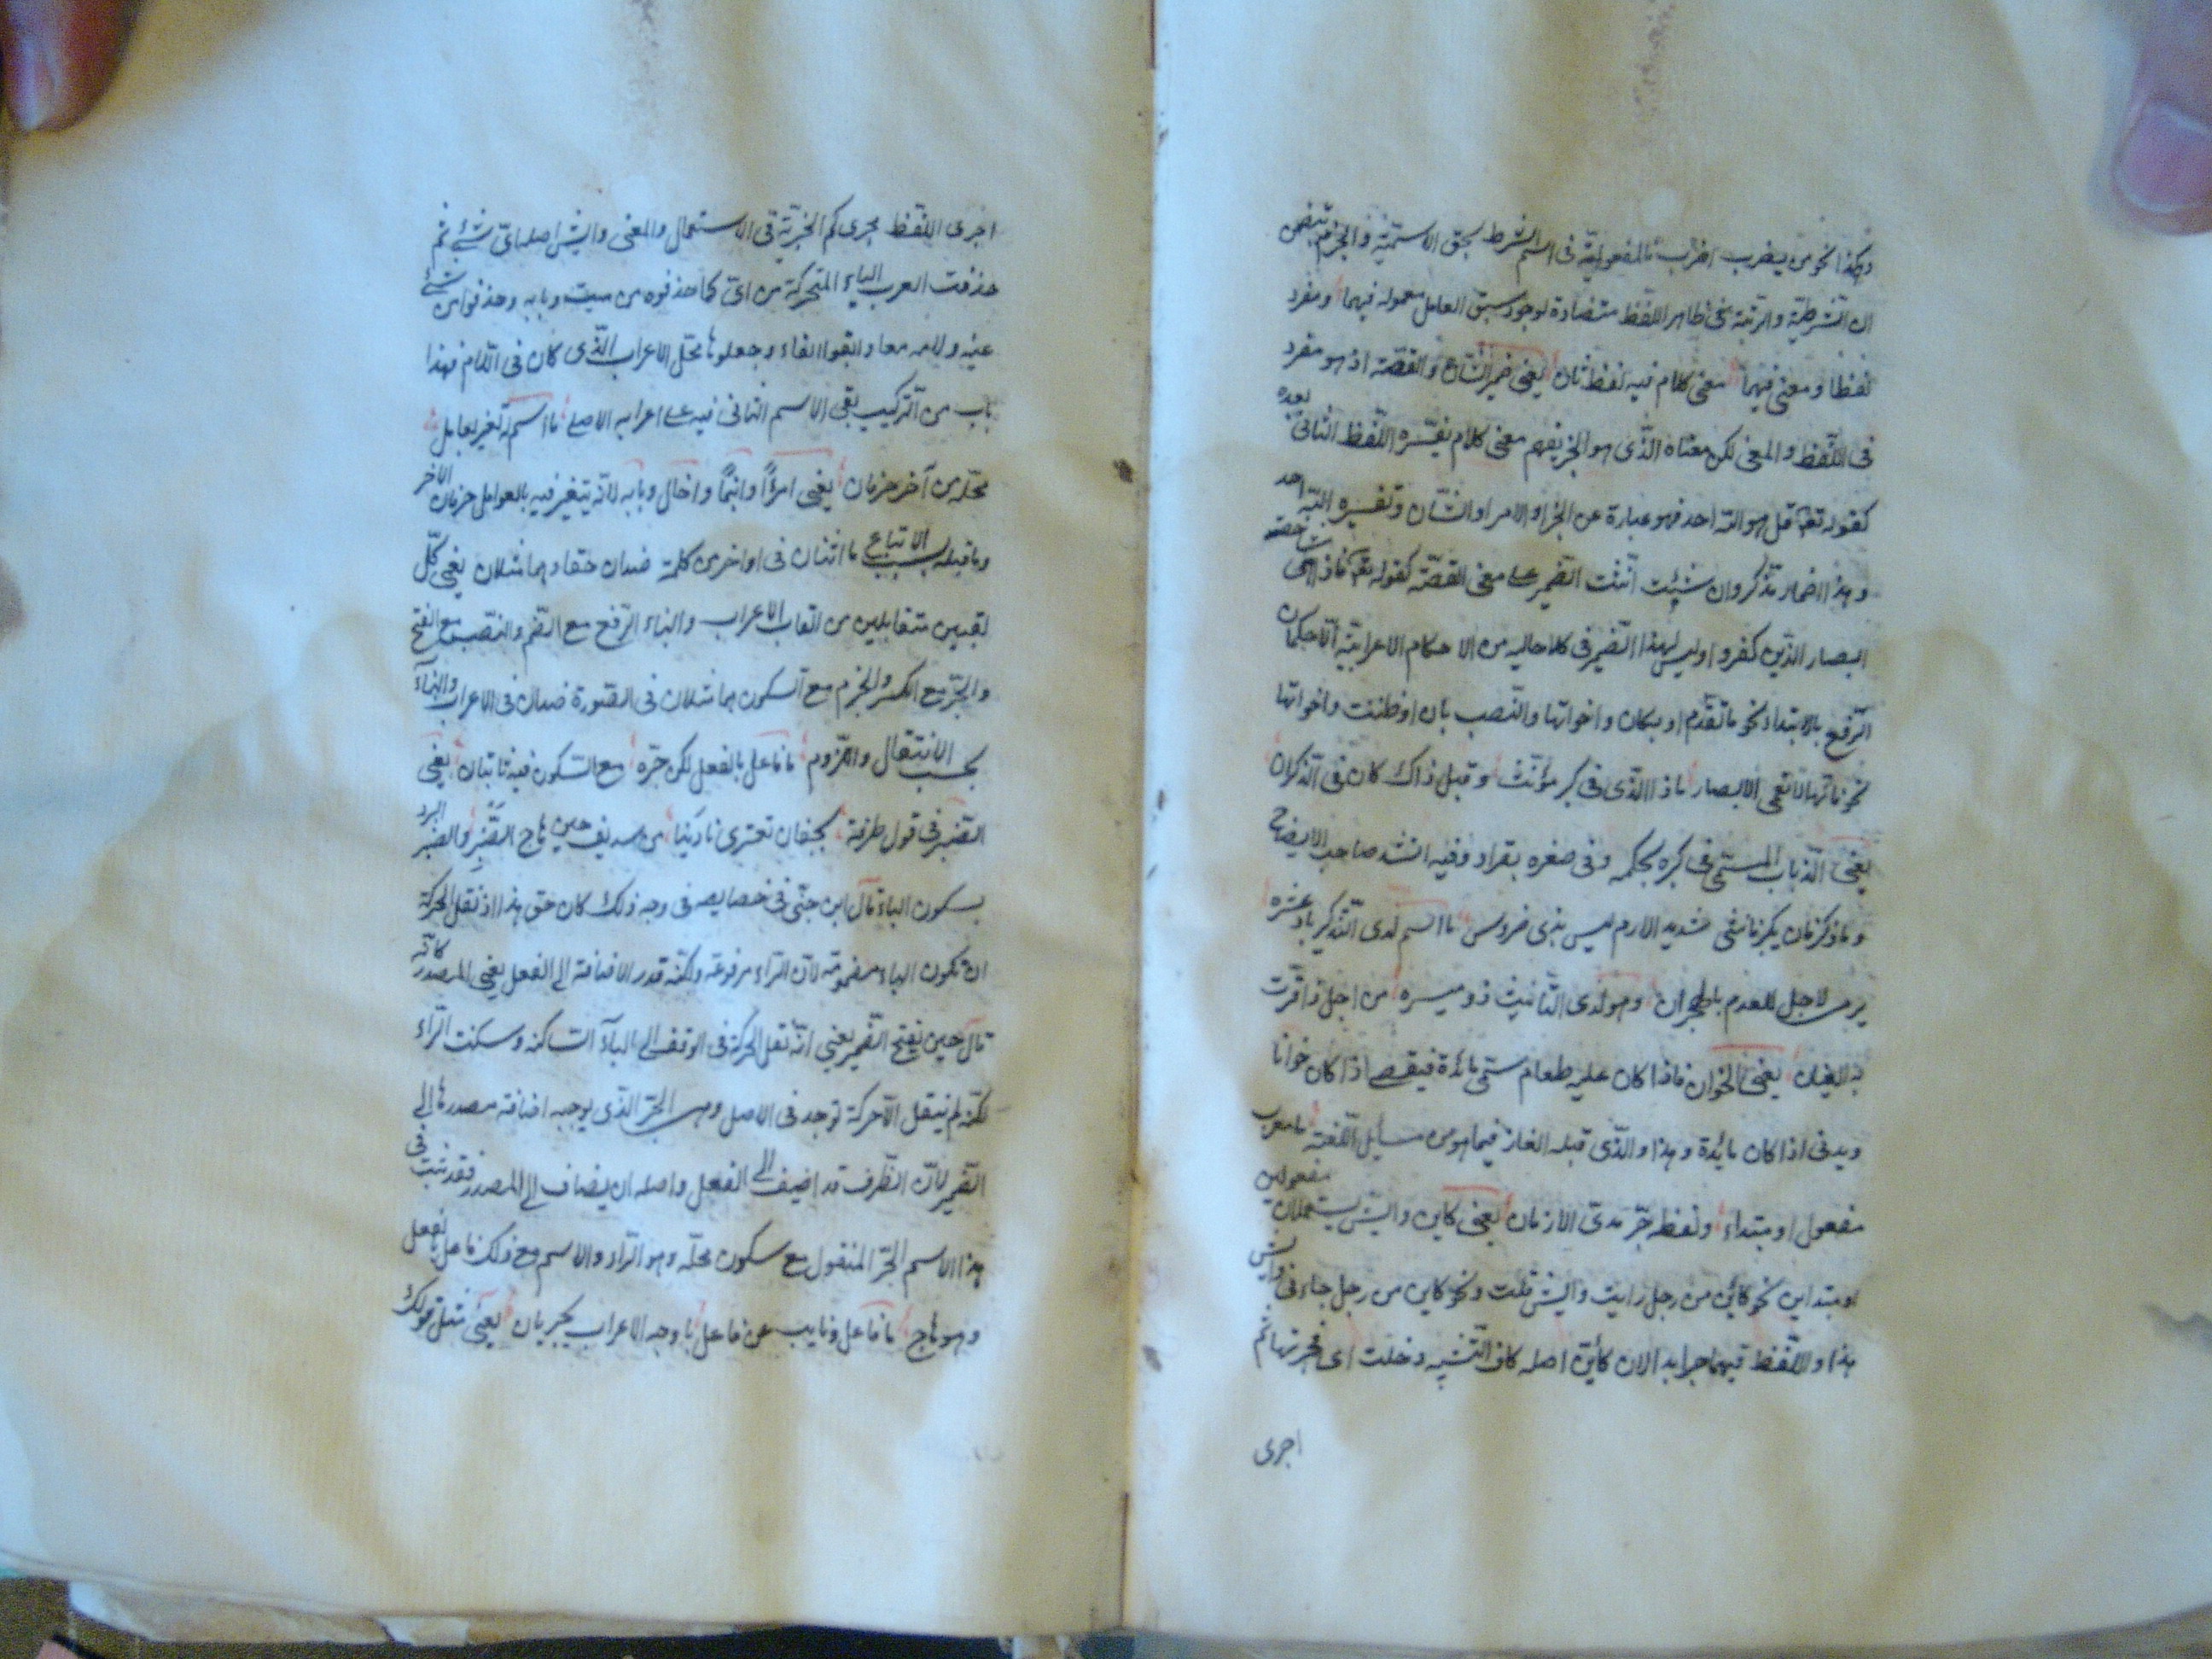 وهكذا نحو من يضرب اضرب فالمفعوليّة فى اسم الشرط بحق الاسميّة والجزم بتضمن
ان الشرطيّة والرتبة فى ظاهر اللفظ متضادة لوجود سبق العامل معموله فيهما ومفرد
لفظا ومعنى فيهما معنى كلام فيه لفظ ثان يعنى ضمير الشان والقصّة اذ هو مفرد
فى اللّفظ والمعنى لكن معناه الّذى هو الخبر يفهم معنى كلام يفسّره اللّفظ الثانى بعده
كقوله تعالى قل هو الله احد فهو عبارة عن الخبر او الامر او الشّان وتفسيره الله احد
وهذا اضمار مذكر وان شئت انّثت الضمير على معنى القصّة كقوله تعالى فاذا هى شاخصة
ابصار الذّين كفروا وليس لهذا الضّمير فى كلا حاليه من الاحكام الاعرابيّة الّا حكمان
الرّفع بالابتداء نحو ما تقدّم او بكان واخواتها والنّصب بان او ظننت واخواتها
نحو فانّها لا تعمى الابصار ما ذا الّذى فى كبر مؤنّث وقبل ذاك كان فى الذكران
يعنى الذباب المسمّى فى كبره بحلمه وفى صغره بقراد وفيه انشد صاحب الايضاح
وما ذكر فان يكبر فانثى شديد الازم ليس بذى ضروس ما اسم لدى التّذكير باد عسره
يرمى لاجل العدم بالهجران وهو لدى التّانيث ذو ميسره من اجل ذا قرّت
به العينان يعنى الخوان فاذا كان عليه طعام سمّى مائدة فيقصى اذا كان خوانا
ويدنى اذا كان مائدة وهذا والّذى قبله الغاز فيما هو من مسايل اللّغة ما معرب
مفعول او مبتداء ولفظه جرّ مدى الازمان يعنى كاين وايش يستعملان مفعولين
او مبتداين نحو كائن من رجل رايت وايش قلت ونحو كاين من رجل جاءنى وايش
هذا واللّفظ فيهما جر ابدا لان كائن اصله كاف التّشبيه دخلت اى فجرتها ثم
اجرى
اجرى اللّفظ مجرى كم الخبريّة فى الاستعمال والمعنى وايش اصلها اىّ شئ ثم
حذفت العرب الياء المتحركة من اىّ كما حذفوه من ميت وبابه وحذفوا من شئ
عينه ولامه معا وابقوا الفاء وجعلوها محلّ الاعراب الّذى كان فى اللّام فهذا
باب من التّركيب بقى الاسم الثانى فيه على اعرابه الاصلى ما اسم له تغير بعامل
محلّه من آخر حرفان يعنى امرءًا وابنمًا واخاك وبابه لانّه يتغير فيه بالعوامل حرفان الآخر
وما قبله بسبب الاتباع ما اثنان فى اواخر من كلمة ضدان حقا وهما مثلان يعنى كلّ
لقبين متقابلين من القاب الاعراب والبناء الرّفع مع الضّم والنّصب مع الفتح
والجرّ مع الكسر والجزم مع السّكون هما مثلان فى الصّورة ضدان فى الاعراب والبناء
بحسب الانتقال واللّزوم ما فاعل بالفعل لكن جرّه مع السّكون فيه ثابتان يعنى
الصّنبر فى قول طرفة بجفان تعترى نادينا من سديف حين هاج الصّنّبر والصّنبر البرد
بسكون الباء قال ابن جنّى فى خصايصه فى وجه ذلك كان حق هذا اذ نقل الحركة
ان تكون الباء مضمومة لانّ الرّاء مرفوعة ولكنّه قدر الاضافة الى الفعل يعنى المصدر كانّه
قال حين هيج الصّنّبر يعنى انّه نقل الحركة فى الوقف الى الباء السّاكنة وسكنت الرّاء
لكنّه لم ينقل الّا حركة توجد فى الاصل وهى الجرّ الّذى يوجبه اضافة مصدر هاج الى
الصّنبر لانّ الظّرف قد اضيف الى الفعل واصله ان يضاف الى المصدر فقد ثبت فى
هذا الاسم الجرّ المنقول مع سكون محلّه وهو الرّاء والاسم مع ذلك فاعل بالفعل
وهو هاج ما فاعل ونايب عن فاعل باوجه الاعراب يجريان يعنى مثل قولك